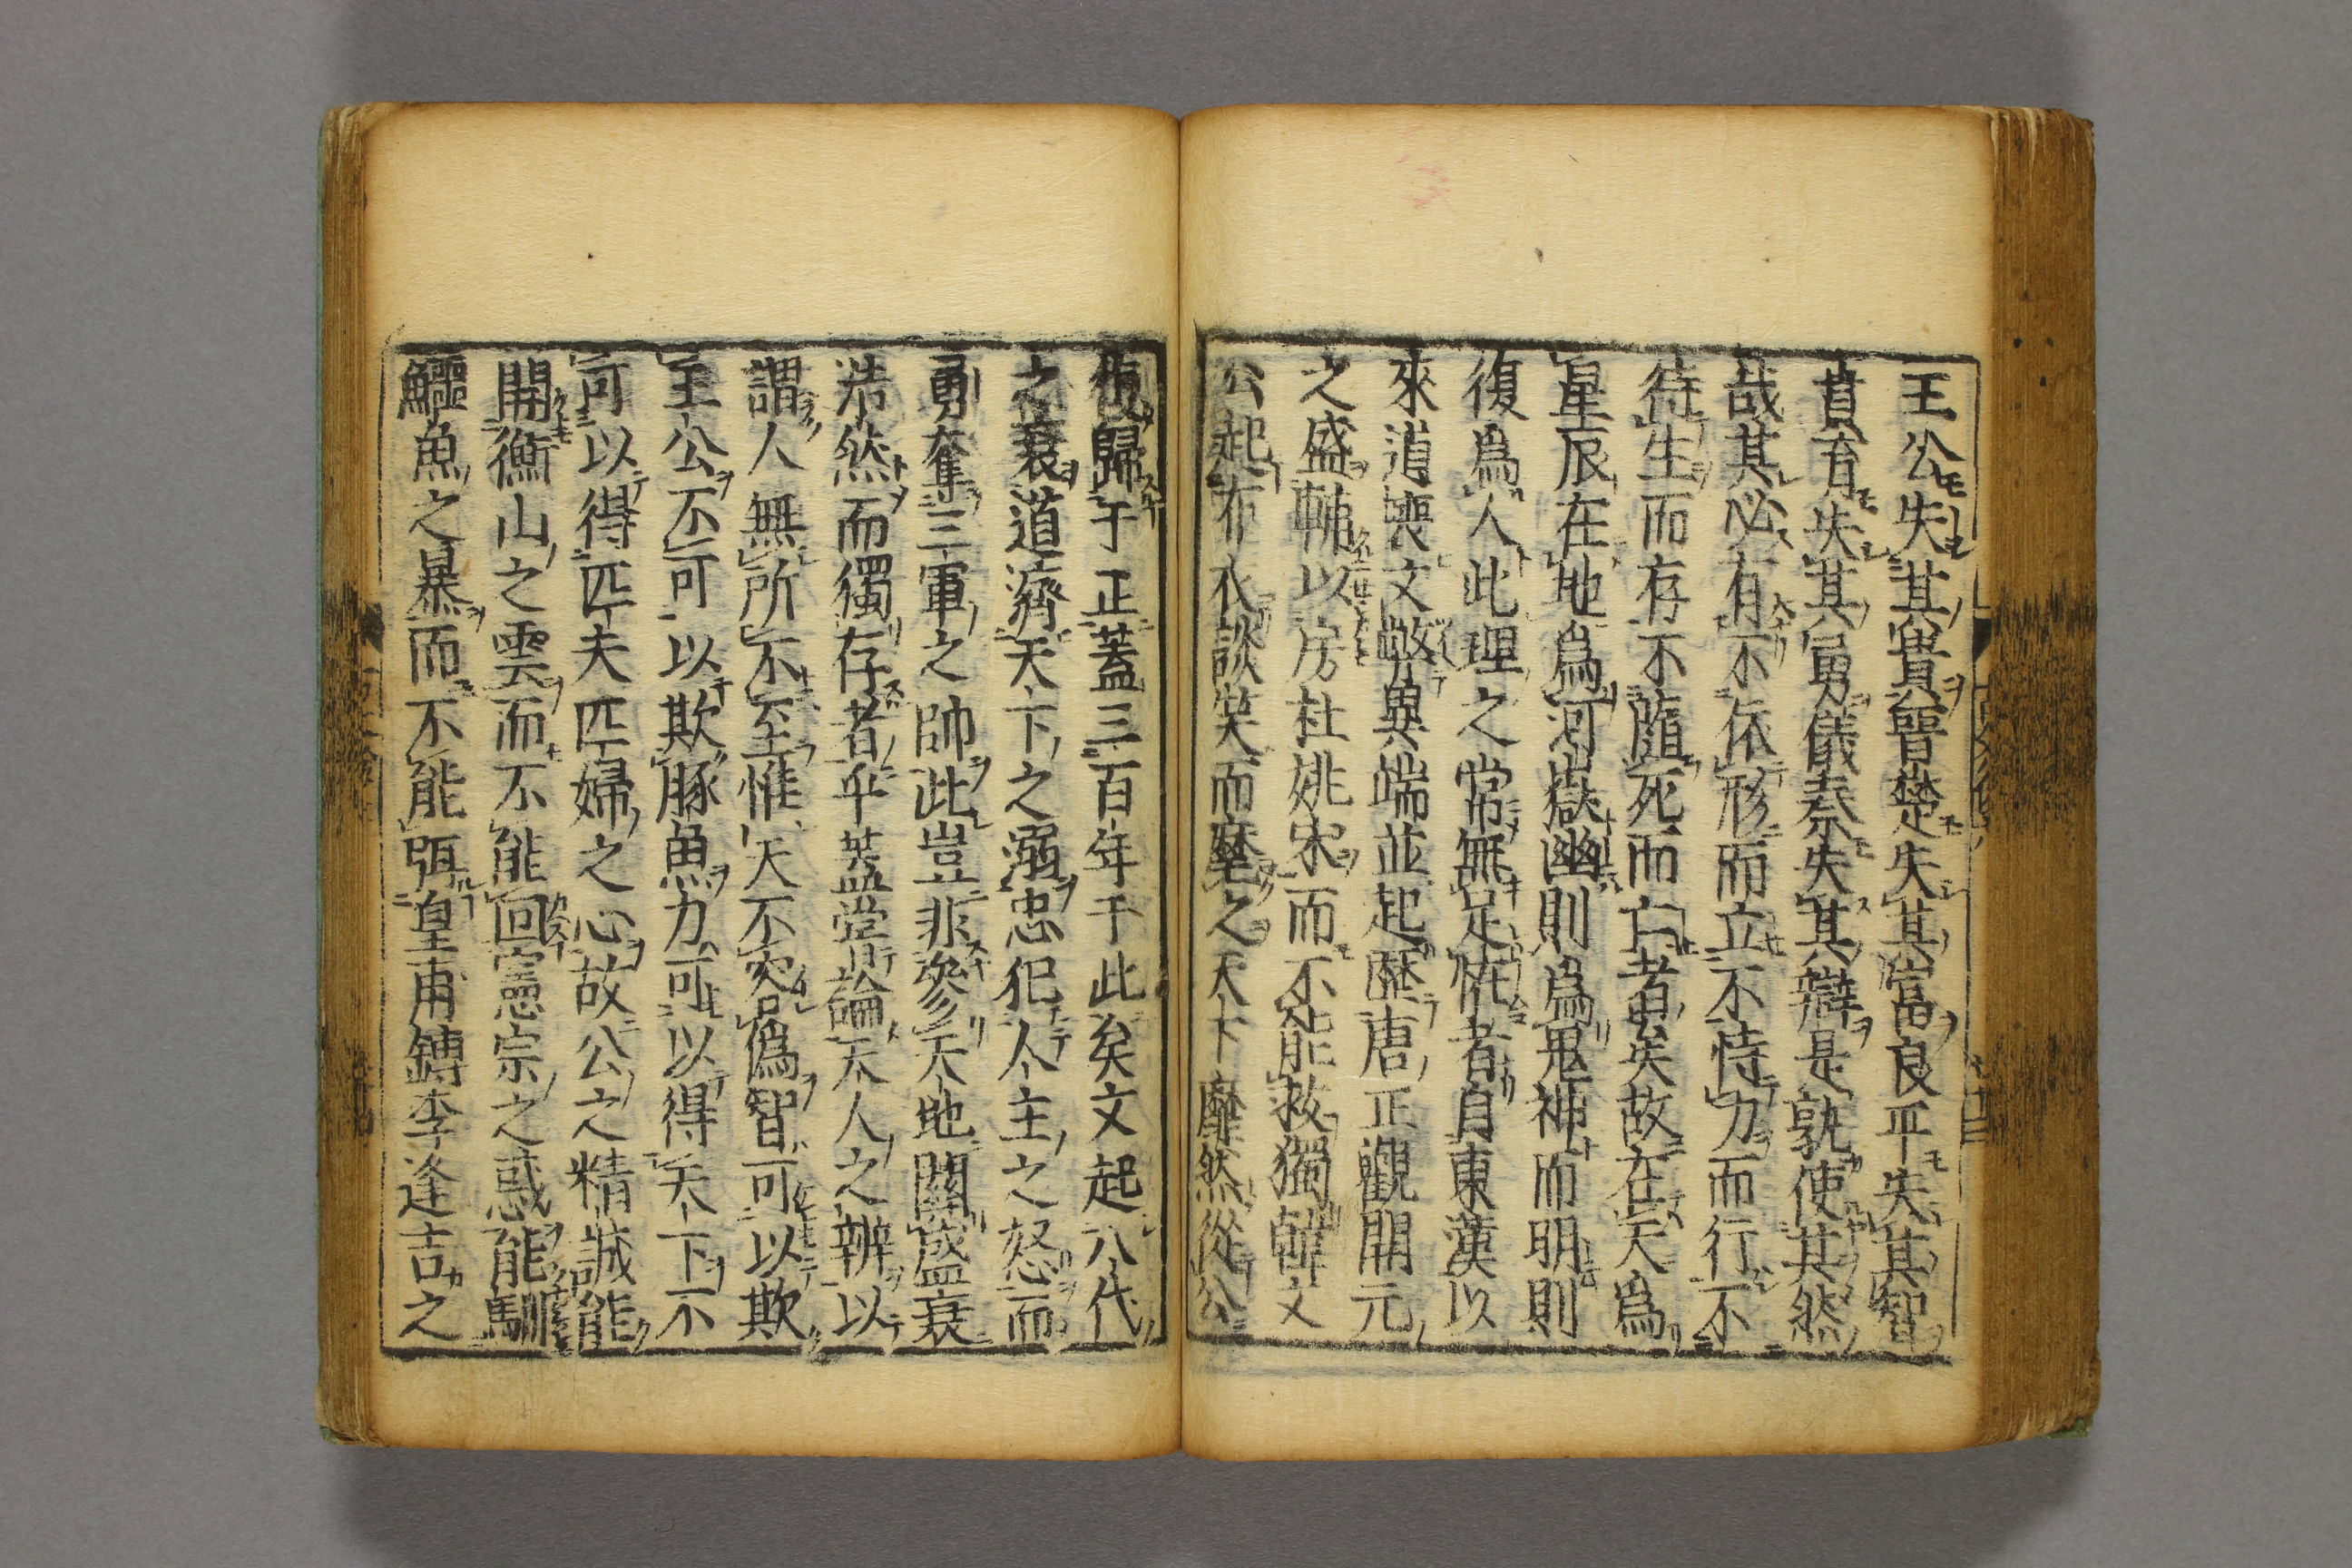 王公失其貴晉楚失其富良平失其智
賁育失其勇儀秦失其辯是孰使其然
哉其必有不依形而立不恃力而行不
待生而存不隨死而亡者矣故在天爲
星辰在地爲河嶽幽則爲鬼神而明則
復爲人此理之常無足怪者自東漢以
來道喪文弊異端並起歷唐正觀開元
之盛輔以房杜姚宋而不能救獨韓文
公起布衣談笑而麾之天下靡然從公
復歸于正蓋三百年于此矣文起八代
之衰道濟天下之溺忠犯人主之怒而
勇奪三軍之帥此豈非參天地關盛衰
浩然而獨存者乎蓋嘗論天人之辨以
謂人無所不至惟天不容僞智可以欺
王公不可以欺豚魚力可以得天下不
可以得匹夫匹婦之心故公之精誠能
開衡山之雲而不能回憲宗之惑能馴
鱷魚之暴而不能弭皇甫鎛李逢吉之